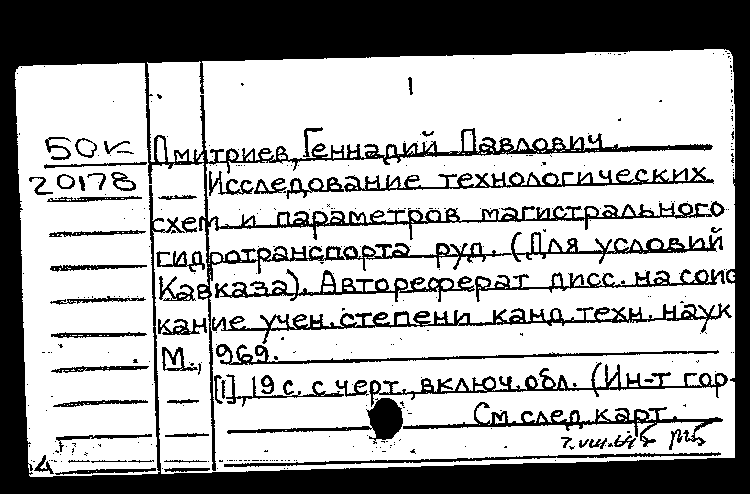 1
50к Дмитриев, Геннадий Павлович.
20178 Исследование технологических
схем и параметров магистрального
гидротранспорта руд. (Для условий
Кавказа). Автореферат дисс. на соис
кание учен. степени канд. техн. наук
М., 969.
[1], 19 с. с черт., включ. обл. (Ин-т гор-
См. след. карт.